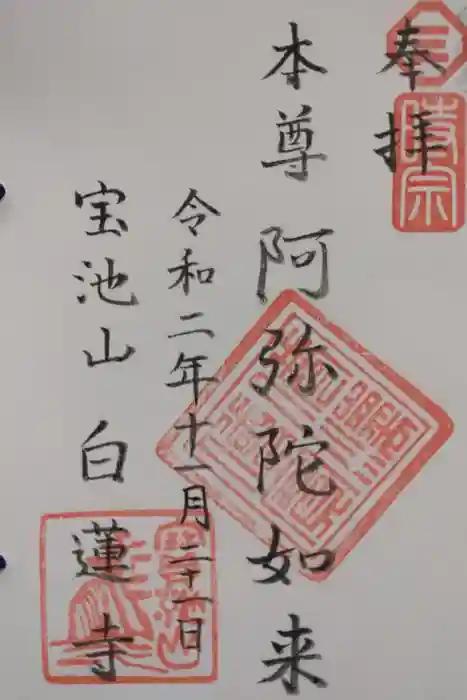 奉拝
時宗
本尊 阿弥陀如来
令和二年十一月二十一日
宝池山 白蓮寺